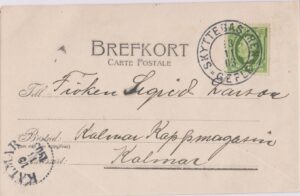 BREFKORT
CARTE POSTALE
SKYTTEGASKEN
GEFLE
Till Fröken Sigrid Larson
Bostad: Kalmar Kappmagasin
Kalmar
KALMAR